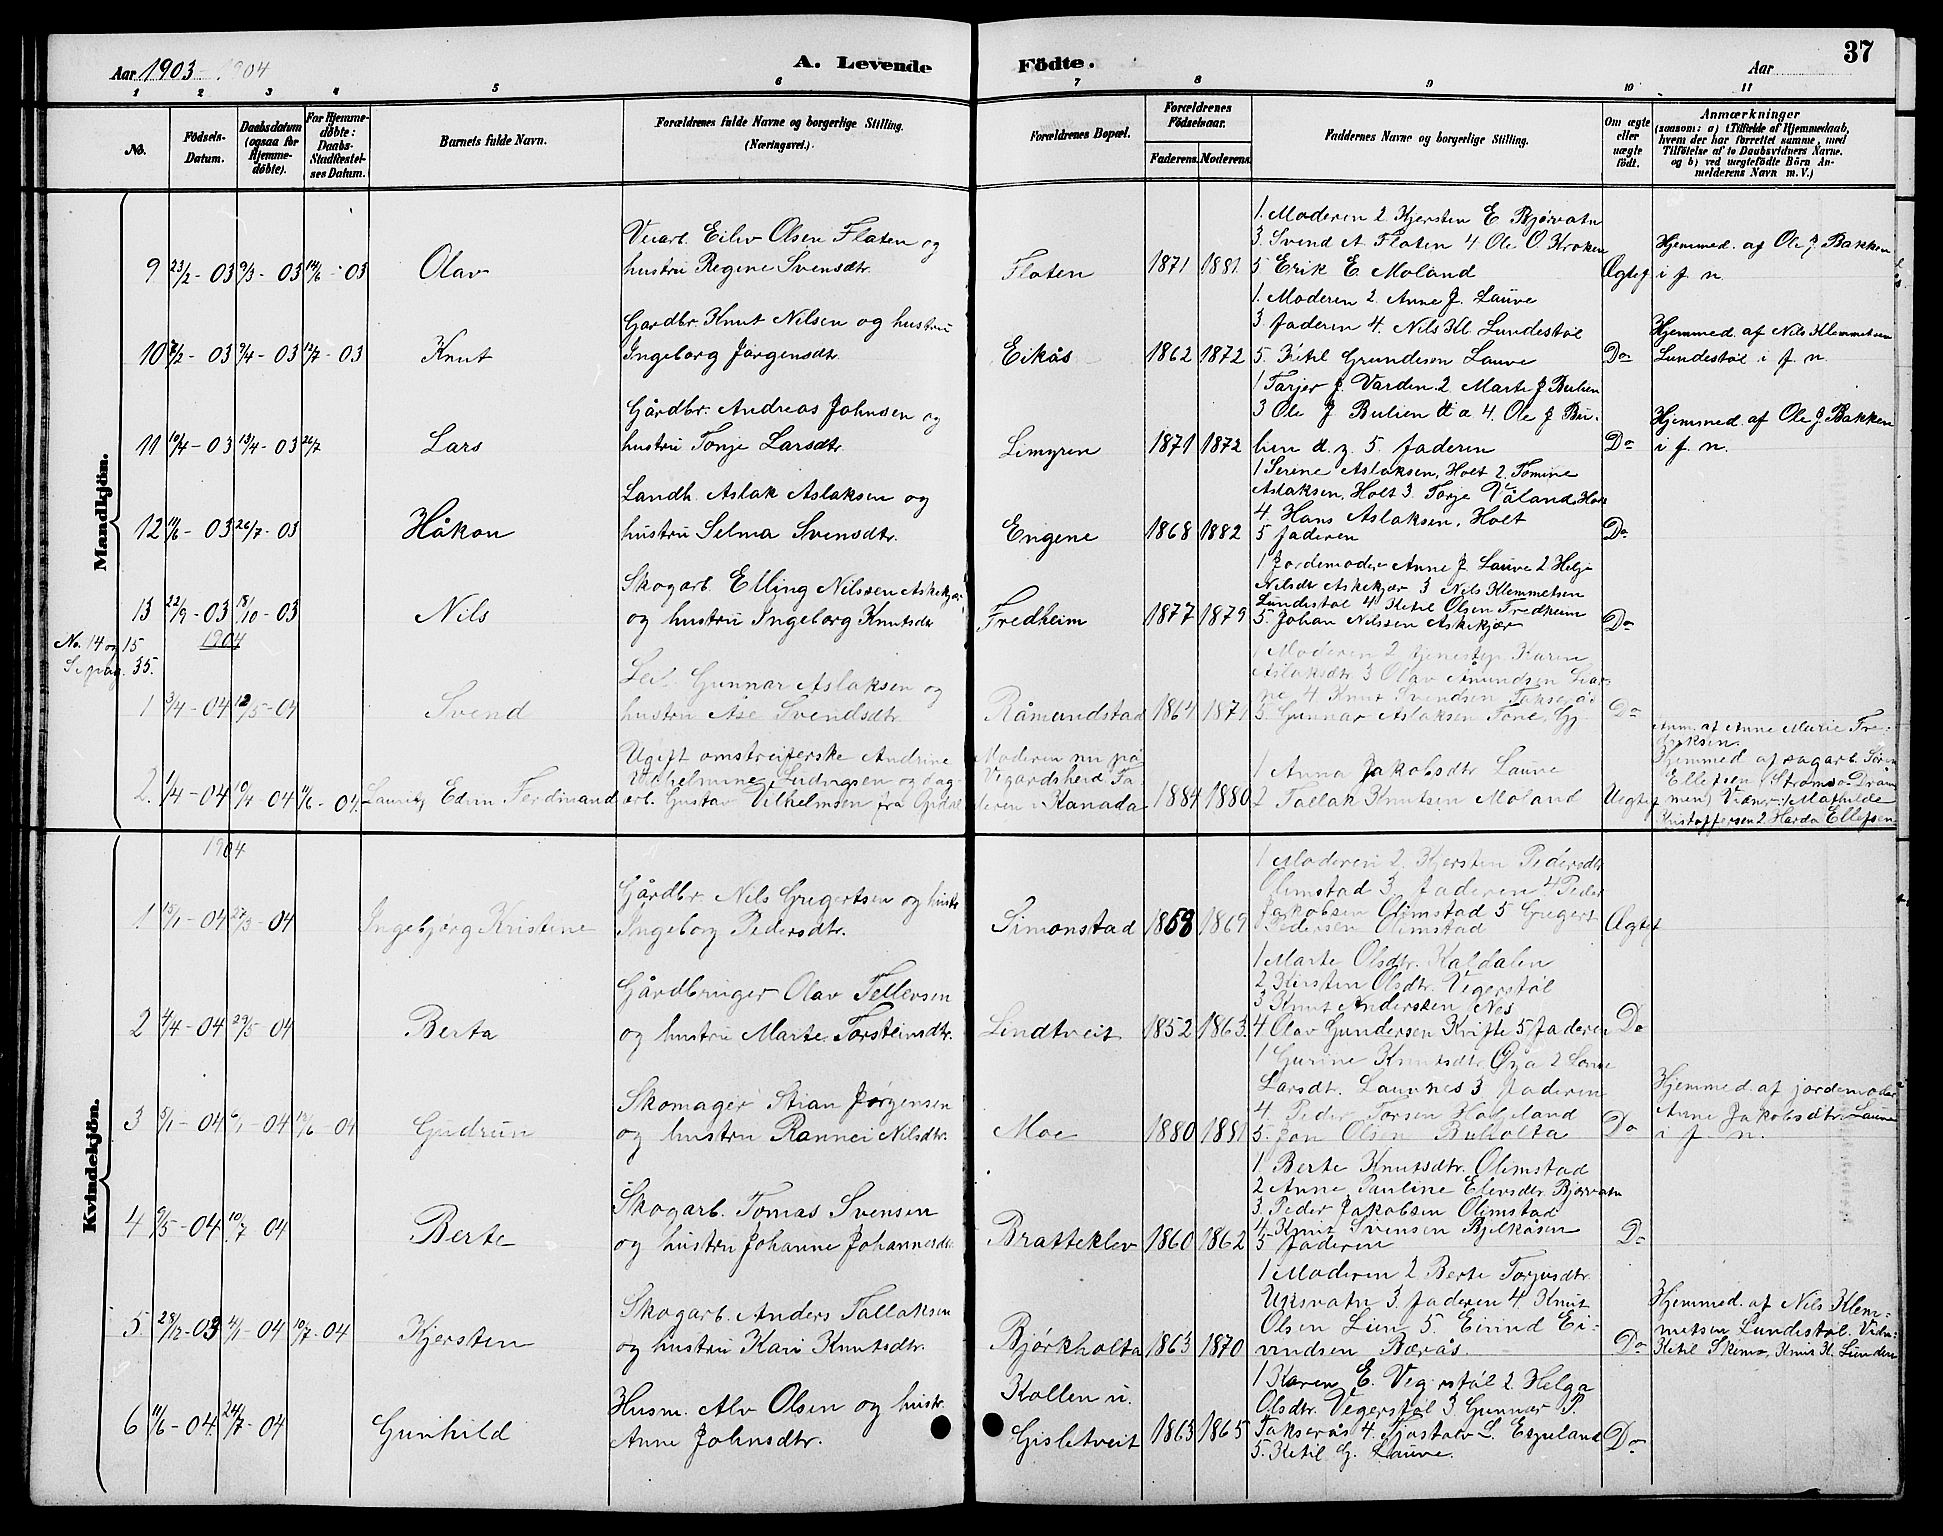 Aar 1903-1904
A. Levende Födte.
Aar
37
1 2 3 4 5 6 7 8 9 10 11
No.
Födsels-Datum.
Daabsdatum (ogsaa for Hjemmedøbte).
For Hjemmedøbte: Daabs-Stadfæstelses Datum.
Barnets fulde Navn.
Forældrenes fulde Navne og borgerlige Stilling. (Næringsvei.)
Forældrenes Bopæl.
Forældrenes Födselsaar.
Faderens. Moderens.
Faddernes Navne og borgerlige Stilling.
Om ægte eller uægte født.
Anmærkninger
(saasom: a) i Tilfælde af Hjemmedaab,
hvem der har forrettet samme, med
Tilføielse af to Daabsvidners Navne.
og b) ved uægtefødte Börn An-
melderens Navn m. V.)
Mandkjön.
9 23/2-03 9/3-03 14/6-03 Olav
Veiarb. Eiliv Olsen Flaten og
hustru Regine Svensdtr.
Flaten 1871 1881
1. Moderen 2 Kjersten E Bjørvatn
3. Svend A Flaten 4 Ole O Kroken
5 Erik E Moland
Ægtef
Hjemmed. af Ole J Bakken
i f. n.
10 /2-03 9/4-03 12/7-03 Knut
Gardbr. Knut Nilsen og hustru
Ingeborg Jørgensdtr.
Eikås 1862 1872
1. Moderen 2. Anne J. Lauve
3. faderen 4. Nils Kl. Lundestøl
5. Ketil Grundesen Lauve
Do
Hjemmed. af Nils Klemmetsen
Lundestøl i f. n.
11 10/4-03 13/4-03 26/7 Lars
Gårdbr. Andreas Johnsen og
hustru Tonje Larsdtr.
Limyren 1871 1872
1 Tarjer J. Varden 2. Marte J Bulien
3 Ole J Bulien d. æ 4. Ole J Bu-
lien d. y. 5. faderen
Do
Hjemmed. af Ole J Bakken
i f. n.
12 11/6-03 26/7-03 Håkon
Landh. Aslak Aslaksen og
hustru Selma Svensdtr.
Engene 1868 1882
1 Serine Aslaksen, Holt 2. Tomine
Aslaksen, Holt 3. Torje Våland, Holt
4. Hans Aslaksen, Holt
5 faderen
Do
13 22/9-03 18/10-03 Nils
Skogarb. Elling Nilssen Askekjær
og hustru Ingeborg Knutsdtr
Fredheim 1877 1879
1 Jordemoder Anne J. Lauve 2 Helje
Nilsdtr Askekjær 3 Nils Klemmetsen
Lundestøl 4 Ketil Olsen Fredheim
5. Johan Nilssen Askekjær
Do
No. 14 og 15
Se pag. 35.
1904
1 3/4-04 12/5-04 Svend
Gunnar Aslaksen og
hustru Åse Svendsdtr.
Råmundstad 1864 1871
1 Moderen 2 tjenestep. Karen
Aslaksdtr 3 Olav Åmundsen
4 Knut Svendsen Takserås
5. Gunnar Aslaksen
Do
2. 1/4-04 10/4 04 11/6-04 Lauritz Edvin Ferdinand
Ugift omstreiferske Andrine
Vilhelmine Ludvigsen og dag-
arb. Gustav Vilhelmsen fra
Moderen nu på
Vegardsheid Fa-
deren i Kanada
1884 1880
1 Anna Jakobsdtr Lauve
2 Tallak Knutsen Moland
Uegtef
Anm. af Anne Marie Fre-
driksen.
Hjemmed af sagarb. Søren
Ellefsen (Strømsø Dram-
men) Vidner: 1 Mathilde
Kristoffersen 2 Harda Ellefsen
Kvindekjön.
1904
1. 15/1-04 27/3-04 Ingebjørg Kristine
Gårdbr. Nils Gregertsen og hustr.
Ingeborg Pedersdtr.
Simonstad 1868 1869
1 Moderen 2. Kjersten Pedersdtr
Olimstad 3 faderen 4 Peder
Jakobsen Olimstad 5 Gregert
Pedersen Olimstad
Ægtef
2 4/4-04 29/5-04 Berta
Gårdbruger Olav Tellevsen
og hustru Marte Torsteinsdtr.
Lindtveit 1852 1863.
1 Marte Olsdtr. Kaldalen
2 Kirsten Olsdtr. Vegerstøl
3 Knut Andersken Nes
4 Olav Gundersen Kvifte 5 faderen
Do
3 5/1-04 6/1-04 19/6-04 Gudrun
Skomager Stian Jørgensen
og hustru Rannei Nilsdtr.
Moe 1880 1881
1 Gurine Knutsdtr. Øya 2
Larsdtr. Lauvnes 3 faderen
4. Peder Torsen Hageland
5. Jon Olsen Buholta
Do
Hjemmed. af jordemoder
Anne Jakobsdtr. Lauve
i f. n.
4 9/5-04 10/7 04 Berte
Skogarb. Tomas Svensen
og hustru Johanne Johannesdtr.
Bratteklev 1860 1862
1. Berte Knutsdtr. Olimstad
2 Anne Pauline Elevsdtr Bjørvatn
3. Peder Jakobsen Olimstad
4. Knut Svensen Bjelkåsen
5 faderen
Do
5. 28/12-03 4/1-04 10/7-04 Kjersten
Skogarb. Anders Tallaksen
og hustru Kari Knutsdtr.
Bjørkholta 1863 1870
1 Moderen 2 Berte Torjusdtr.
Ufsvatn 3. faderen 4 Knut
Olsen Lien 5. Eivind Ei-
vindsen Børås
Do
Hjemmed. af Nils Klem-
metsen Lundestøl. Vidn:
Ketil Skomo, Knut K. Lunden
6 11/6-04. 24/7-04 Gunhild
Husm. Alv Olsen og hustr.
Anne Johnsdtr.
Kollen u.
Gisletveit 1863 1865
1 Karen E. Vegerstøl 2. Helga
Olsdtr. Vegerstøl 3 Gunnar P.
Takserås 4. Tjøstolv L. Espeland
5. Ketil G. Lauve.
Do